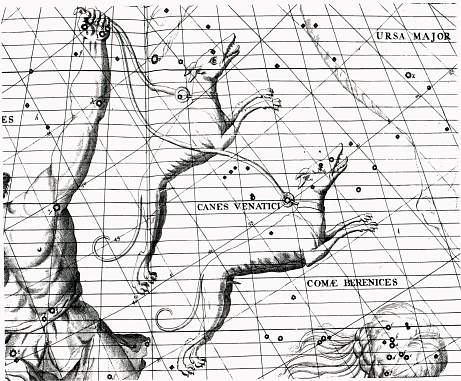 URSA MAJOR
ES
CANES VENATICI
COMÆ BERENICES